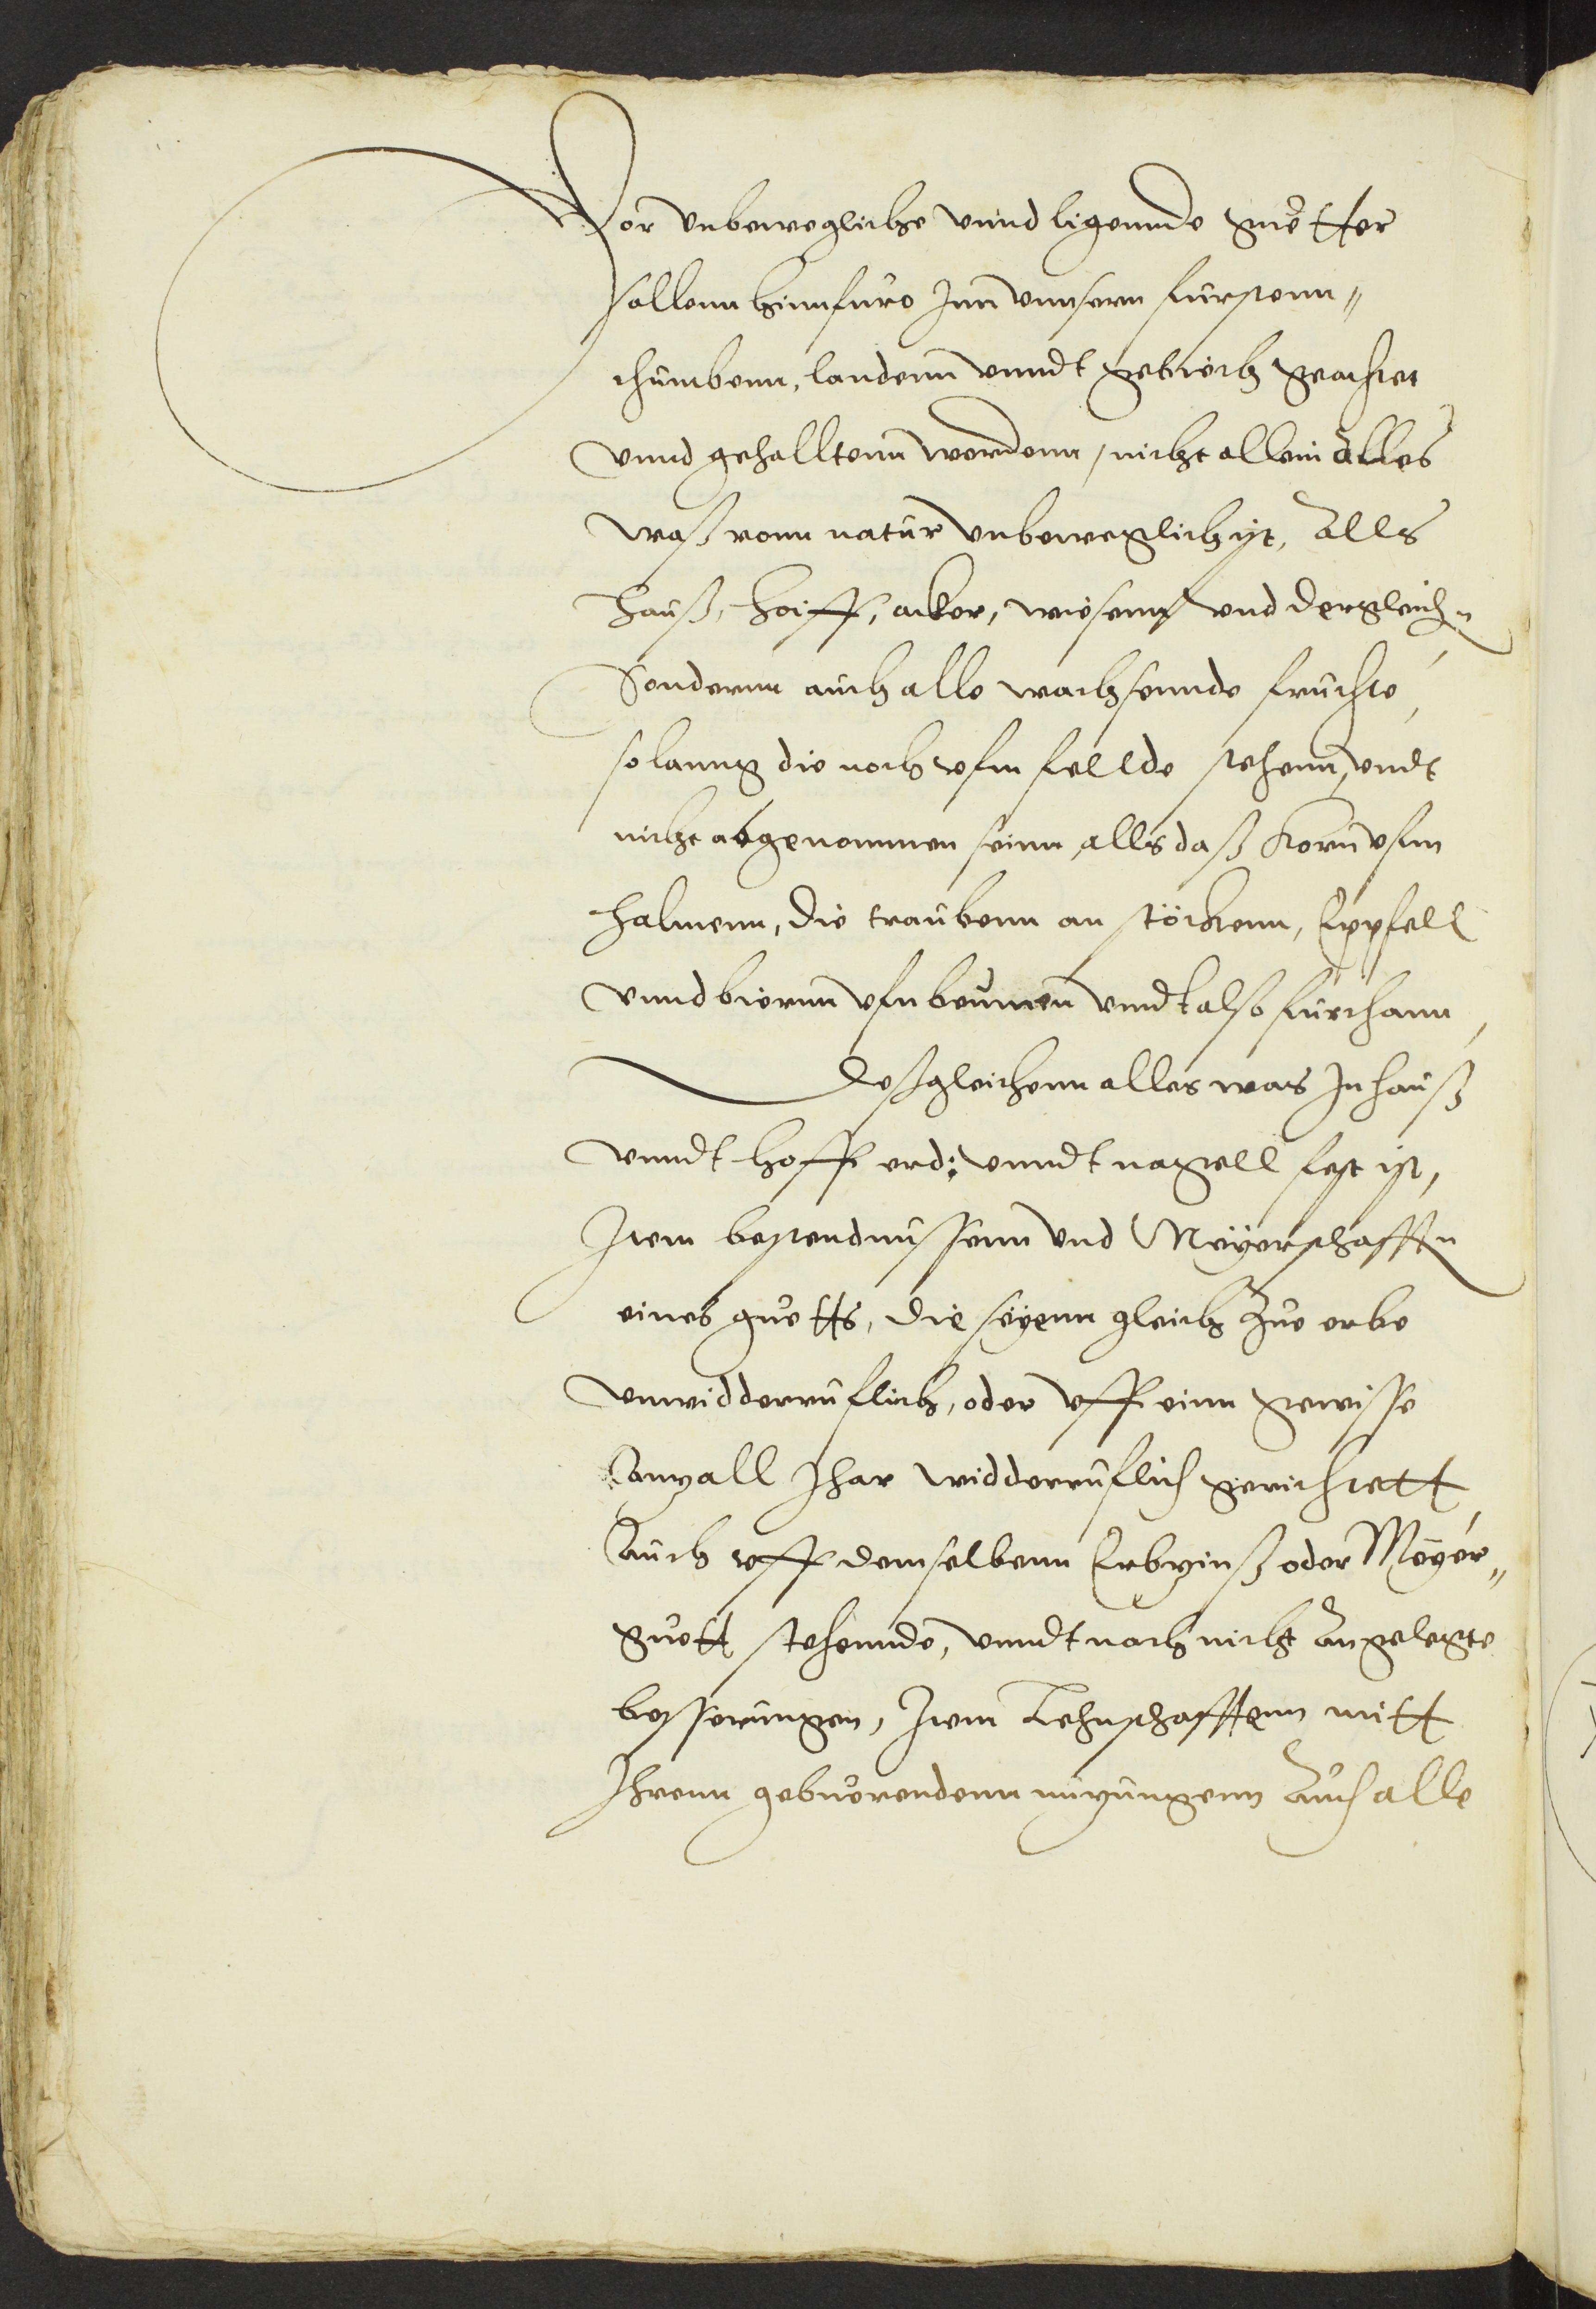 Vor vnbewegliche vnnd ligennde guetter
sollenn hinnfuro Inn vnnsern furstenn„
thumbenn, landenn vnndt gebiech geachtet
vnnd gehalltenn werdenn, nicht allein alles
waß vonn natur vnbeweglich ist, Alls
Hauß, Hoiff, acker, wiesenn vnd dergleichn
Sondernn auch alle wachsennde fruchte,
solanng die noch vfm fellde stehenn, vndt
nicht abgenommen seinn, alls daß korn vfm
Halmenn, die traubenn an stöckenn, Eppfell
vnnd biernn vfn beumen vnndt also furthann,
Deßgleichenn alles was In hauß
vnndt hoff erd: vnndt nagell fest ist,
Item bestendnussenn vnd Meyerschafftn
eines guetts, die seyenn gleich Zue erbe
vnwidderruflich, oder vff einn gewisse
Anzall Ihar widderruflich gerichtett,
Auch vff demselbenn Erbzinß oder Meyer„
guett stehennde, vnndt noch nicht Angelegte
besserungen, Item Lehnschafftenn mitt
Ihrenn gebuerendenn nuzungenn Auch alle